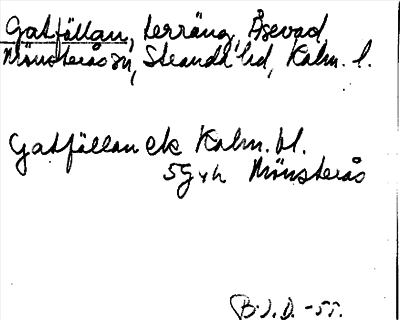 Gatfällan, terräng, Åsevad
Mönsterås sn, Stranda hd, Kalm. l.
Gatfällan ek Kalm. bl.
5G Mönsterås
B.J.D. -55.